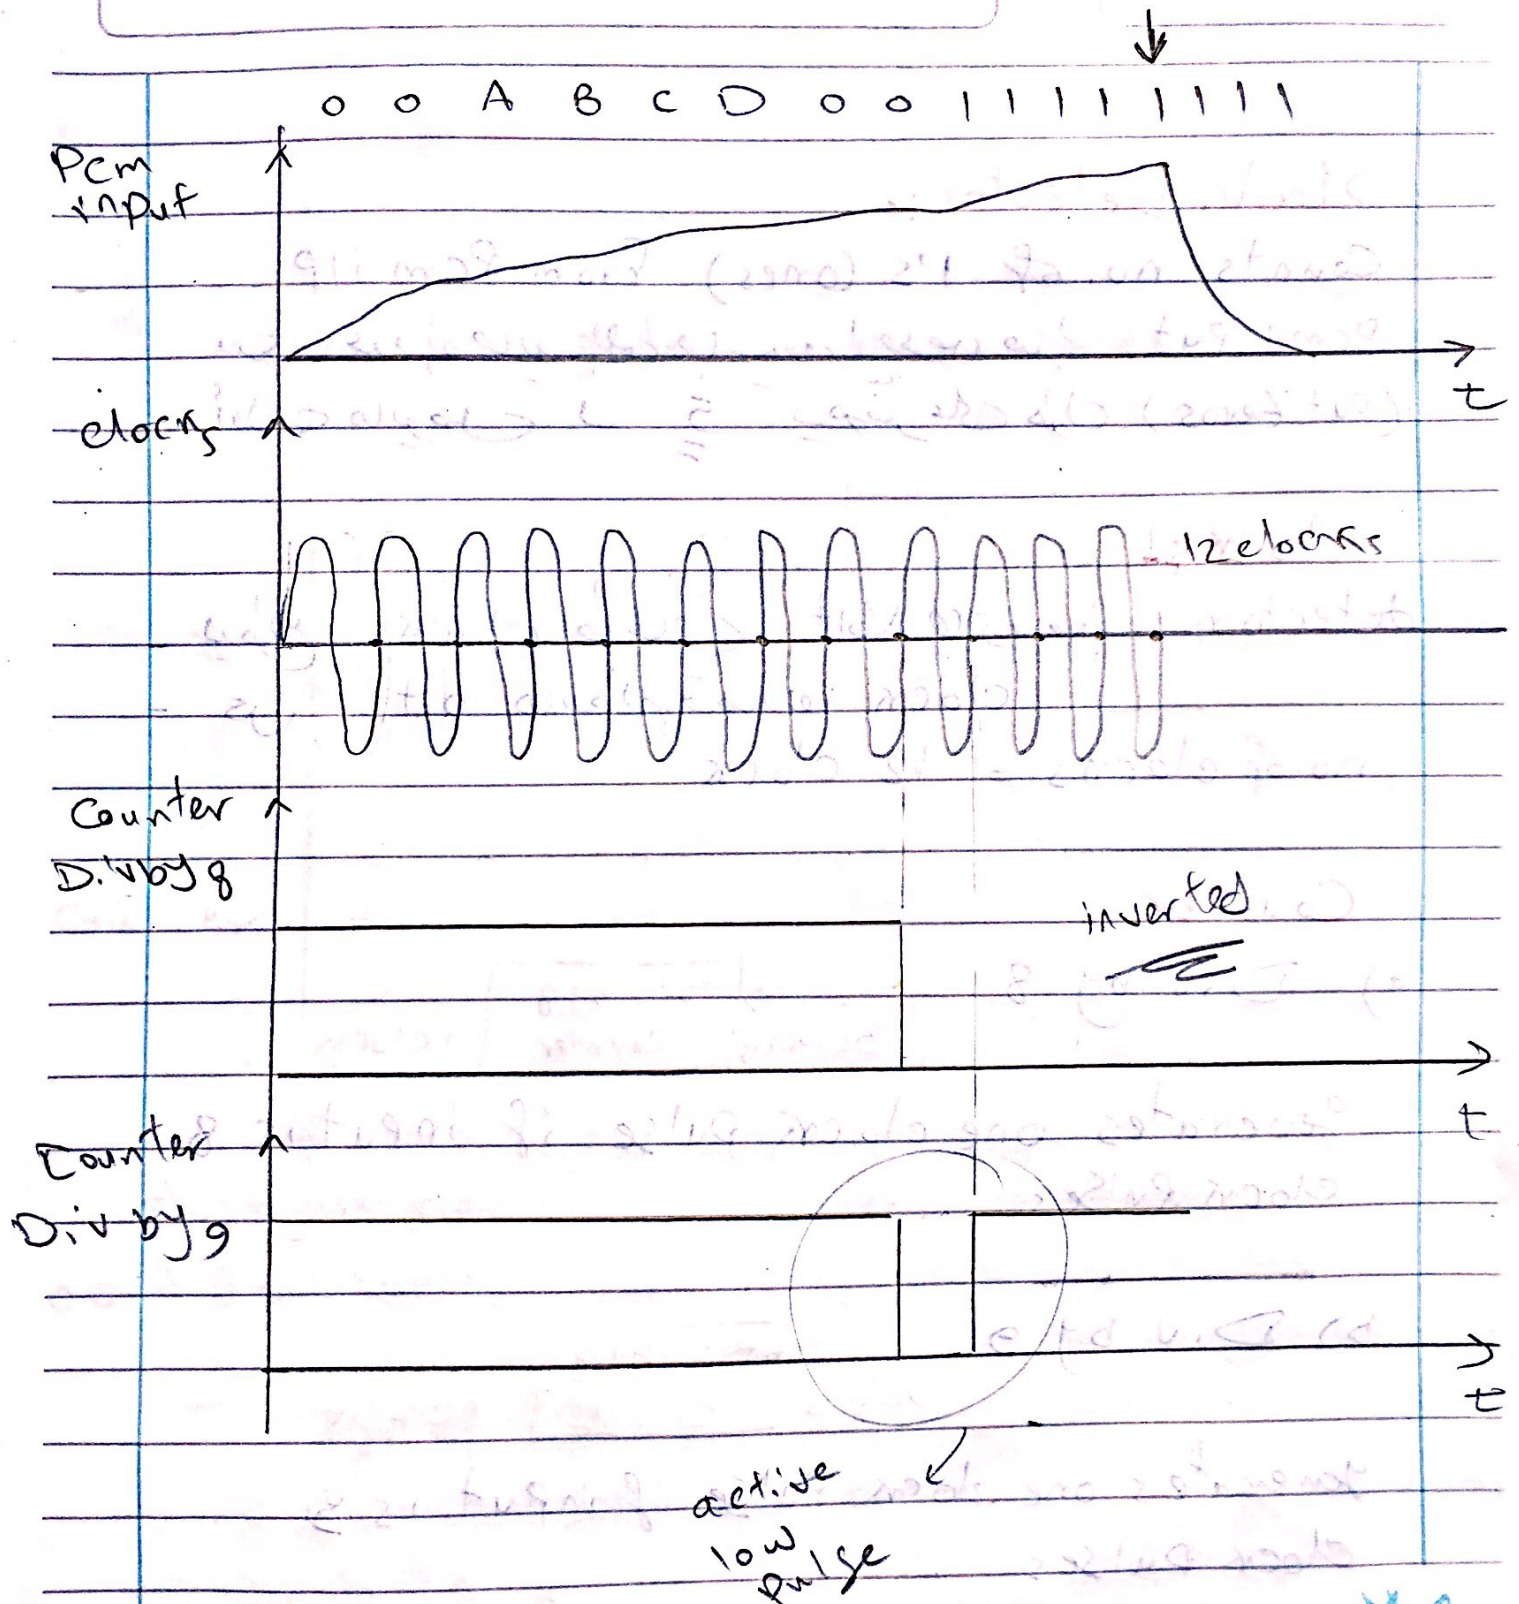 0 0 A B C D 0 0 1 1 1 1 1 1 1 1
Pcm
input
t
clocks
12 clocks
Counter
Div by 8
inverted
t
Counter
Div by 9
t
active
low
pulse